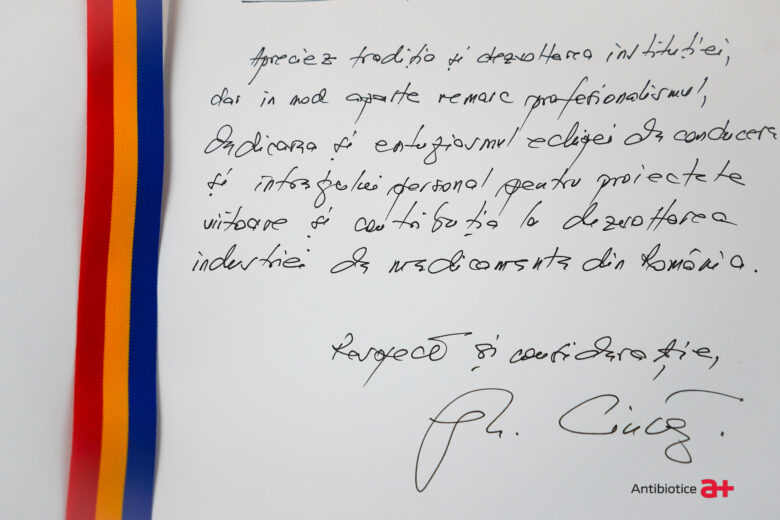 Apreciez tradiția și dezvoltarea instituției,
dar in mod aparte remarc profesionalismul,
dedicarea și entuziasmul echipei de conducere
și intregului personal pentru proiectele
viitoare și contribuția la dezvoltarea
industriei de medicamente din România.
Respect și considerație,
Gh.
Antibiotice a+